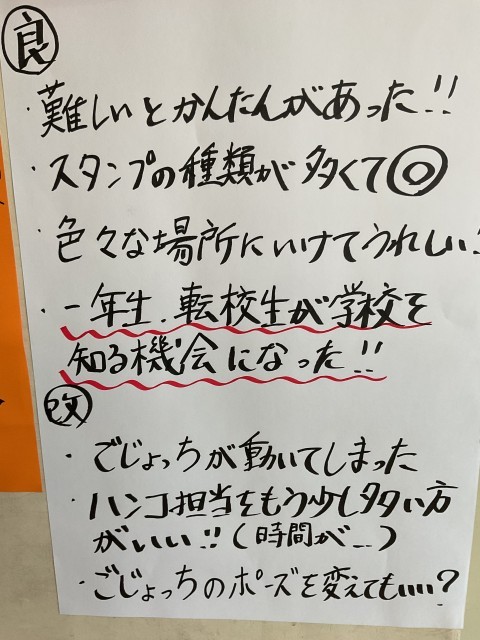 良
・難しいとかんたんがあった!!
・スタンプの種類が多くて◎
・色々な場所にいけてうれしい!
・一年生、転校生が学校を
知る機会になった!!
改
・ごじょっちが動いてしまった
・ハンコ担当をもう少し多い方
がいい!!(時間が…)
・ごじょっちのポーズを変えてもいい?